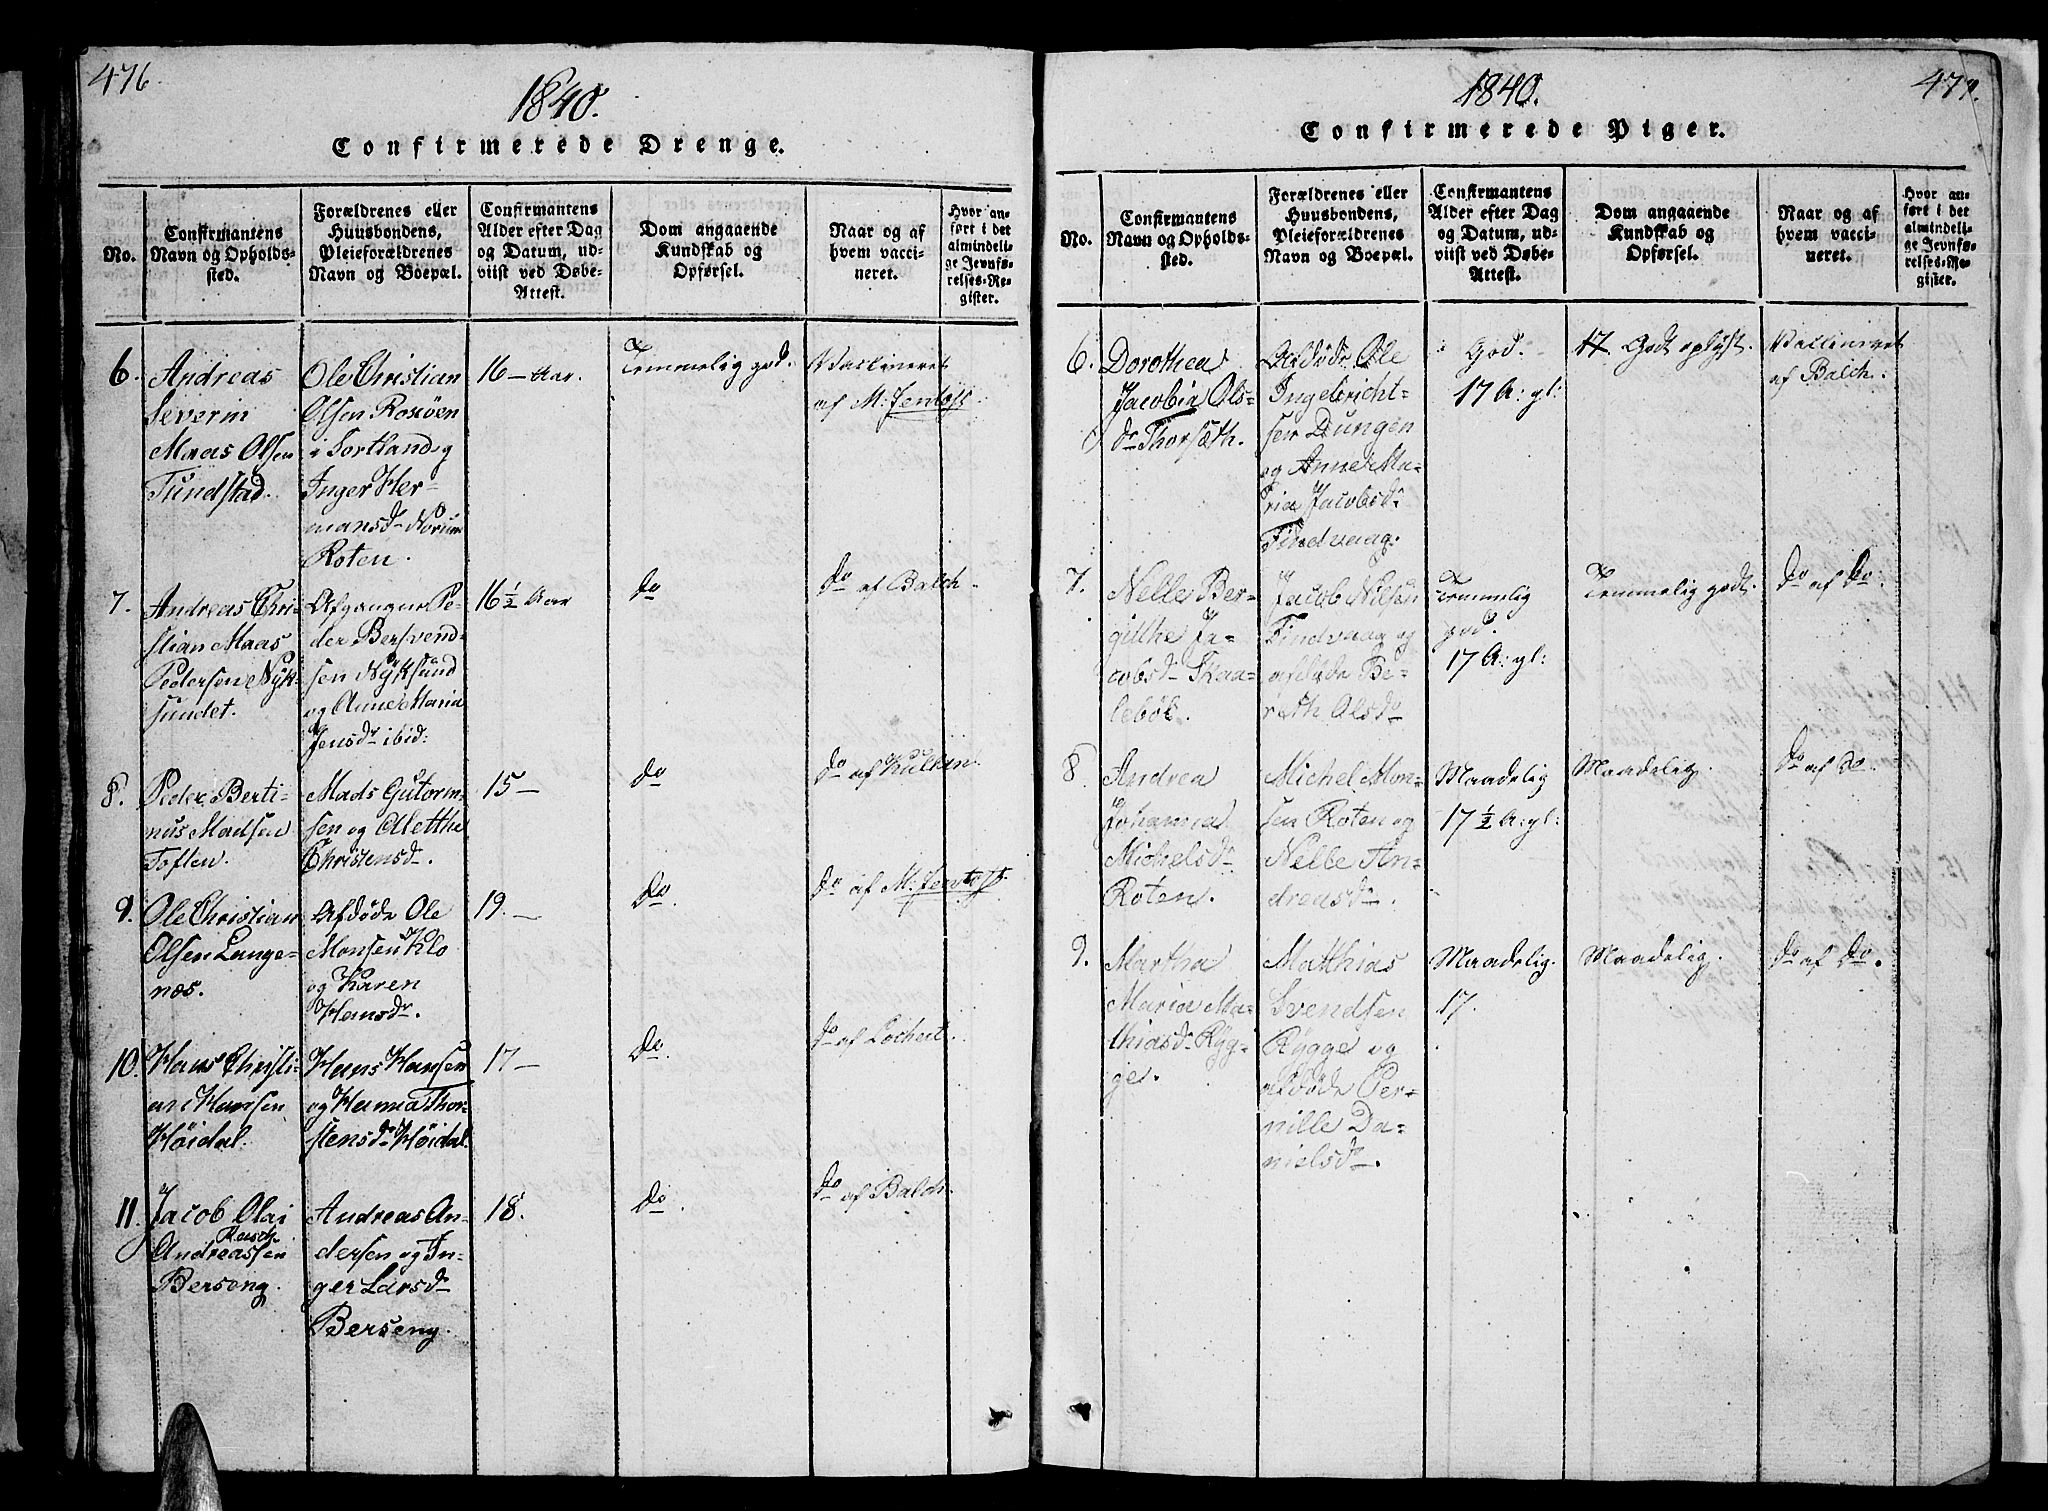 476
1840.
Confirmerede Drenge.
No.
Confirmantens
Navn og Opholds-
sted.
Forældrenes eller
Huusbondens,
Pleieforældrenes
Navn og Boepæl.
Confirmantens
Alder efter Dag
og Datum, ud-
viist ved Døbe-
Attest.
Dom angaaende
Kundskab og
Opførsel.
Naar og af
hvem vacci-
neret.
Hvor an-
ført i det
almindeli-
ge Jevnfø-
relses-Re-
gister.
6.
Andreas
Severin
Maas Olsen
Tundstad.
Ole Christian
Olsen Rosøen
i Sortland og
Inger Her-
mansdr Norum
Roten.
16 - Aar.
Temmelig god.
Vaccineret
af M: Jentoft
7.
Andreas Chri-
stian Maas
Pedersen Nyk-
sundet.
Afgangne Pe-
der Bersvend-
sen Nyksund
og Anne Maria
Jensdr ibid:
16 1/2 Aar
Do
Do af Balch.
8.
Peder Berti-
nus Madsen
Toften.
Mads Gutorm-
sen og Alethe
Christensdr.
15 -
Do
Do af Kulken.
9.
Ole Christian
Olsen Lange-
næs.
Afdøde Ole
Monsen Klo
og Karen
Hansdr.
19. -
Do.
Do af M: Jentoft.
10.
Hans Christi-
an Hansen
Høidal.
Hans Hansen
og Hanna Thor-
stensdr Høidal.
17 -
Do.
Do af Lochert.
11.
Jacob Olai
Rasch
Andreassen
Berseng.
Andreas An-
dersen og In-
ger Larsdr
Berseng.
18.
Do.
Do af Balch.
477.
1840.
Confirmerede Piger.
No.
Confirmantens
Navn og Opholds-
sted.
Forældrenes eller
Huusbondens,
Pleieforældrenes
Navn og Boepæl.
Confirmantens
Alder efter Dag
og Datum, ud-
viist ved Døbe-
Attest.
Dom angaaende
Kundskab og
Opførsel.
Naar og af
hvem vacci-
neret.
Hvor an-
ført i det
almindeli-
ge Jevnfø-
relses-Re-
gister.
6.
Dorothea
Jacobin Ols-
dr Thorsæth.
Afdøde Ole
Ingebricht-
sen Dungen
og Anne Ma-
ria Jacobsdr
Findvaag.
God.
17 A: gl:
17 Godt oplyst.
Vaccineret
af Balch.
7.
Nelle Ber-
githe Ja-
cobsdr Skaa-
lebøl.
Jacob Nilsen
Findvaag og
afdøde Be-
reth Olsdr
Temmelig
god.
17 A: gl:
Temmelig godt.
Do af Do.
8
Andrea
Johanna
Michelsdr
Roten.
Michel Mon-
sen Roten og
Nelle An-
dreasdr.
Maadelig
17 1/2 A: gl:
Maadelig.
Do af Do.
9.
Martha
Maria Ma-
thiasdr Ryg-
ge.
Matthias
Svendsen
Rygge og
afdøde Per-
nille Da-
nielsdr.
Maadelig.
17.
Maadelig.
Do af Do.